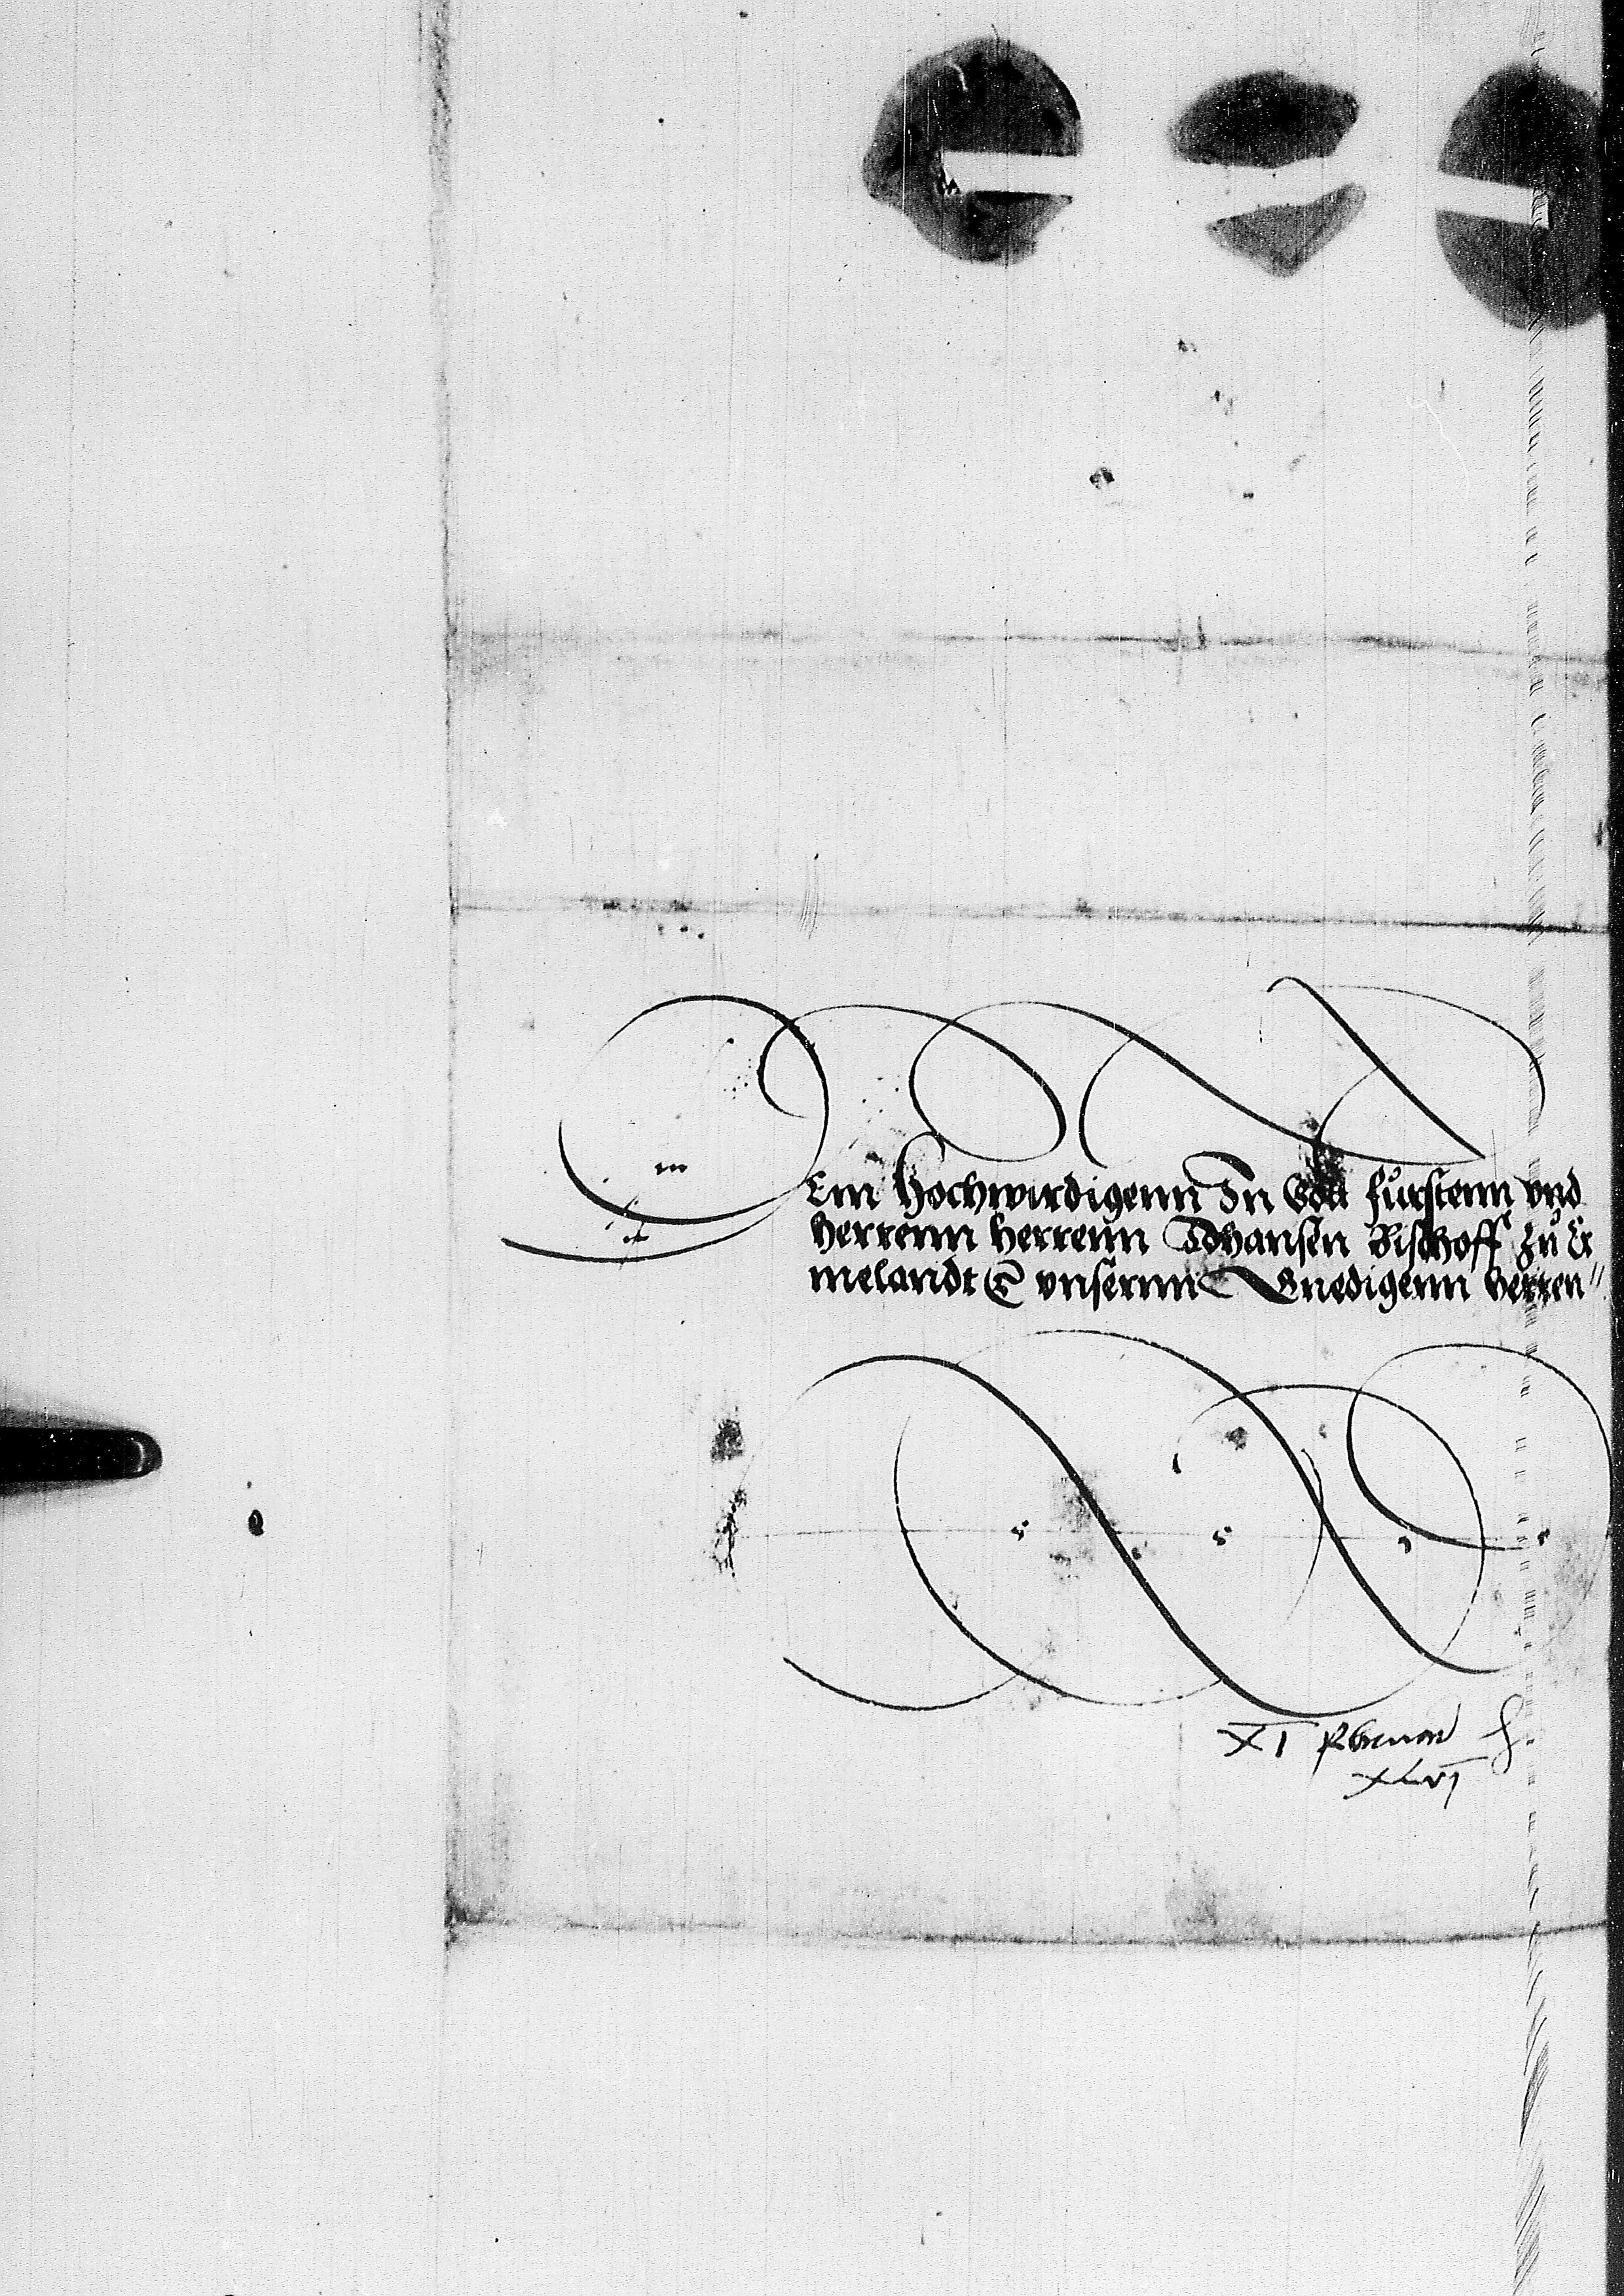 Dem Hochwirdigenn In Gott furstenn vnd
herrenn herrenn Johansen Bischoff zu Er
melandt &c vnsernn Gnedigenn herren
XI Februarii
XLVI